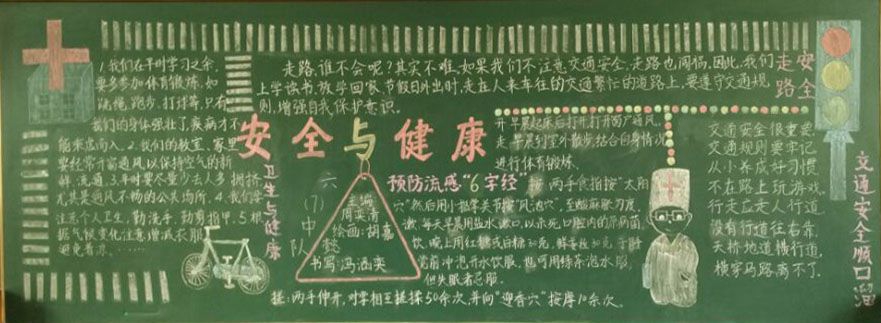 1.我们在平时学习之余,
要多参加体育锻炼,如
跳绳,跑步,打球等,只有
我们的身体强壮了,疾病才不
能乘虚而入。2.我们的教室、家里
要经常开窗通风,以保持空气的新
鲜、流通。3.平时要尽量少去人多、拥挤、
尤其是通风不畅的公共场所。4.我们要
注意个人卫生,勤洗手、勤剪指甲。5.根
据气候变化注意增减衣服,
避免着凉。……
卫生与健康
走路,谁不会呢?其实不难,如果我们不注意交通安全,走路也闯祸,因此,我们
上学读书、放学回家、节假日外出时,走在人来车往的交通繁忙的道路上,要遵守交通规
则,增强自我保护意识。
走安
路全
安全与健康
六(7)中队
主编:
周奕清
绘画:胡嘉
懿
书写:冯涵奕
开:早晨起床后打开窗户通风。
走:早晨到室外散步,结合自身情况
进行体育锻炼。
预防流感“6字经”
按:两手食指按“太阳
穴”,然后用小指掌关节按“风池穴”,至酸麻胀为度。
漱:每天早晨用盐水漱口,以杀死口腔内的病菌。
饮:晚上用红糖或白糖30克,鲜姜
当前冲泡开水饮服,也可用绿茶泡水服,
但失眠者忌服。
搓:两手伸开,对掌相互搓揉50余次,并向“迎香穴”按摩10余次。
交通安全很重要,
交通规则要牢记,
从小养成好习惯,
不在路上玩游戏。
行走应走人行道,
没有行道往右靠,
天桥地道横行道,
横穿马路离不了。
交通安全顺口溜